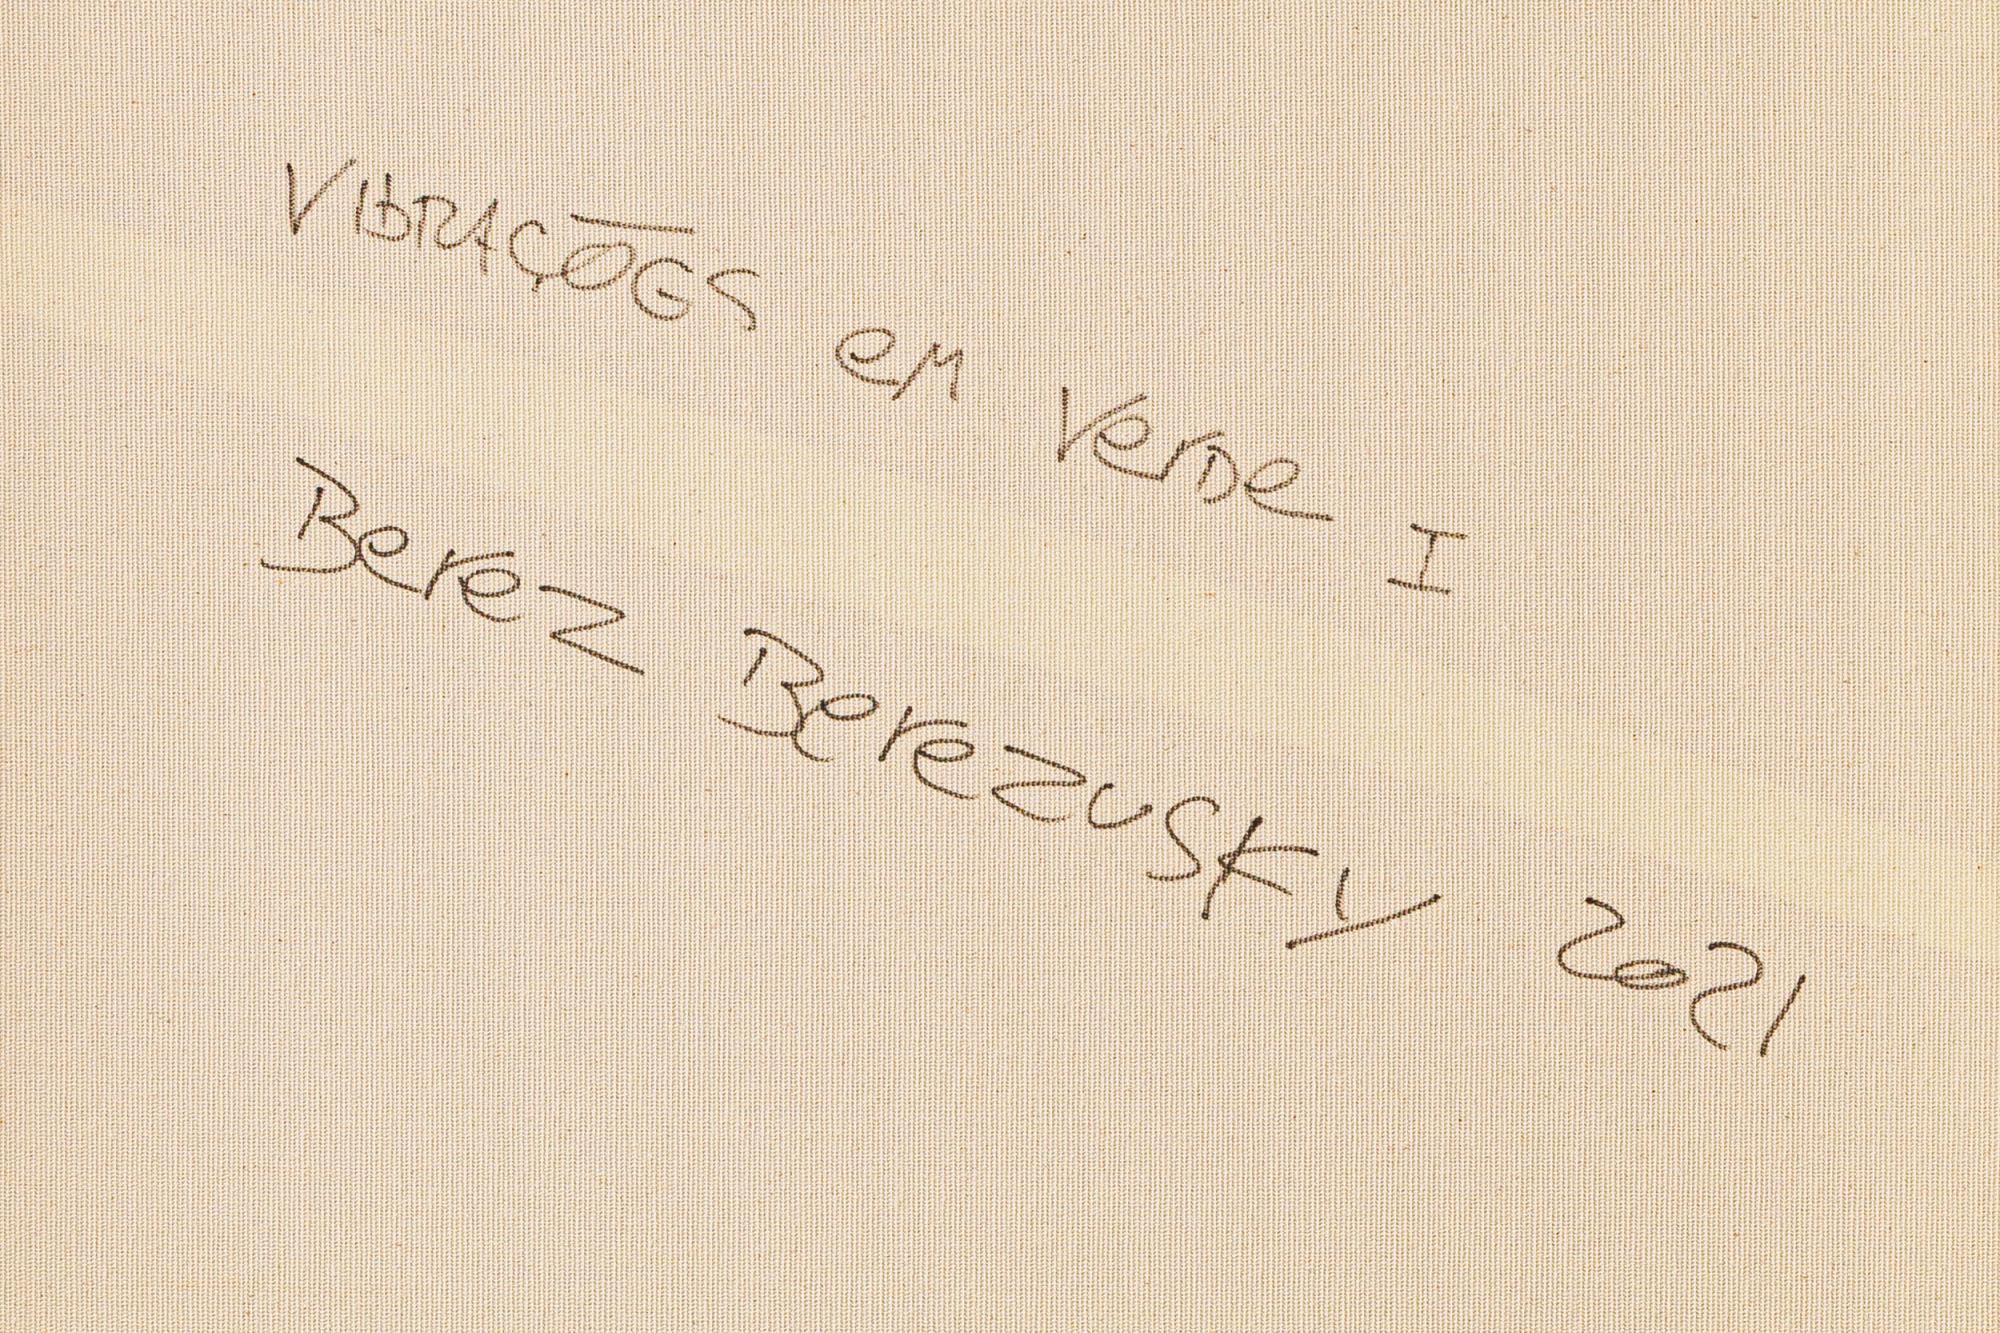 Vibrações em Verde I
Berez Berezusky 2021